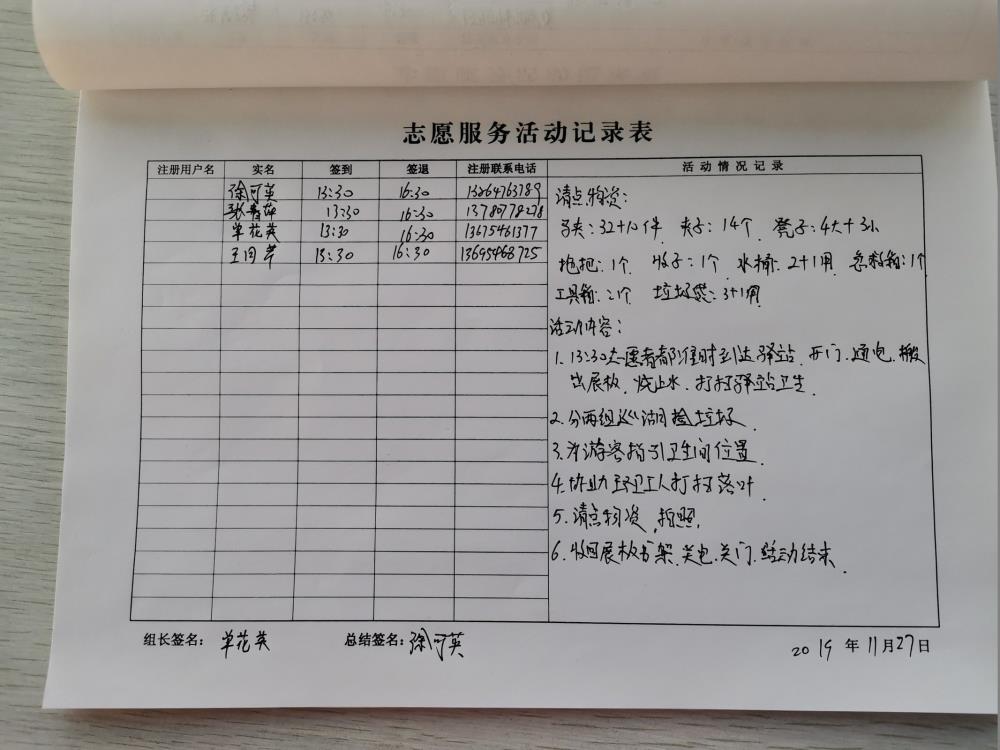 志愿服务活动记录表
注册用户名 实名 签到 签退 注册联系电话 活动情况记录
徐可英 13:30 16:30 13864763789
张青萍 13:30 16:30 13780778278
单花英 13:30 16:30 13675461377
王同芹 13:30 16:30 13695468725
清点物资:
马夹:32+10件 夹子:14个 凳子:4大+3小
拖把:1个 牧子:1个 水桶:2+1用 意料箱:1个
工具箱:2个 垃圾袋:3+1用
活动内容:
1. 13:30志愿者都准时到达驿站.开门.通电.搬
出展板.烧上水.打扫驿站卫生.
2.分两组巡湖捡垃圾.
3.为游客指引卫生间位置.
4.协助环卫工人打扫落叶.
5.清点物资.拍照.
6.收回展板书架.关电.关门.活动结束.
组长签名:单花英 总结签名:徐可英 2019年11月27日